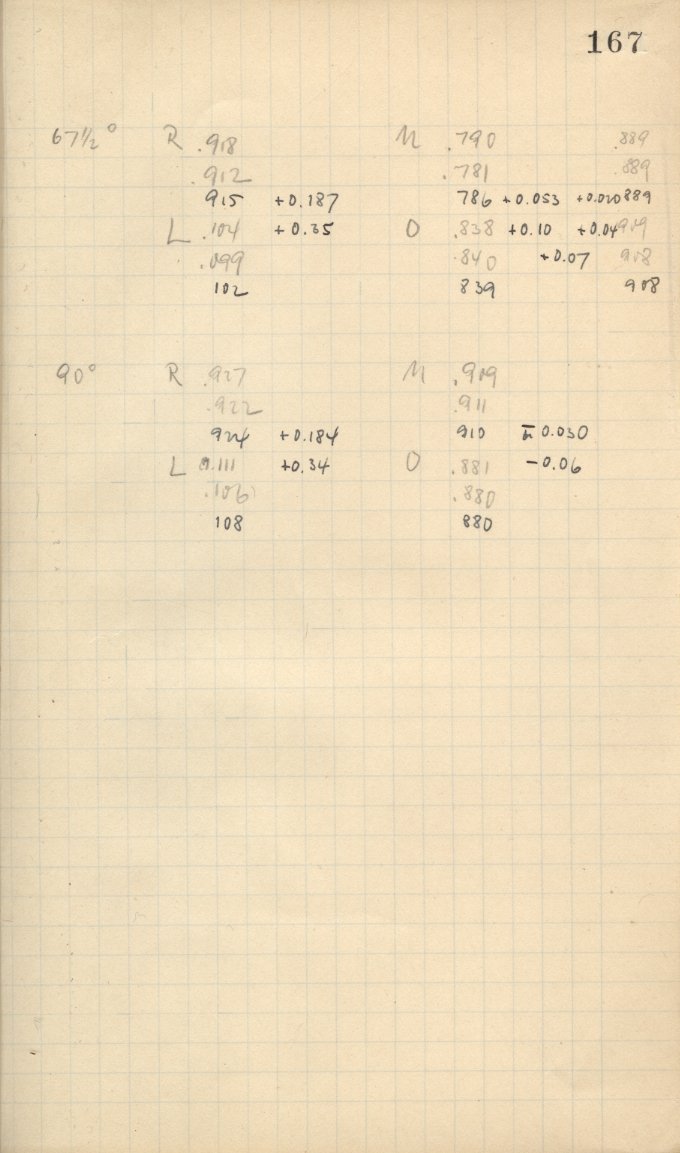 167
67½° R .918 M .790 .889
.912 .781 .889
915 +0.187 786 +0.053 +0.020 889
L .104 +0.35 O .838 +0.10 +0.04 .909
.099 .840 +0.07 908
102 839 908
90° R .927 M .909
.922 .911
924 +0.184 910 0.030
L 0.111 +0.34 O .881 -0.06
.106 .880
108 880